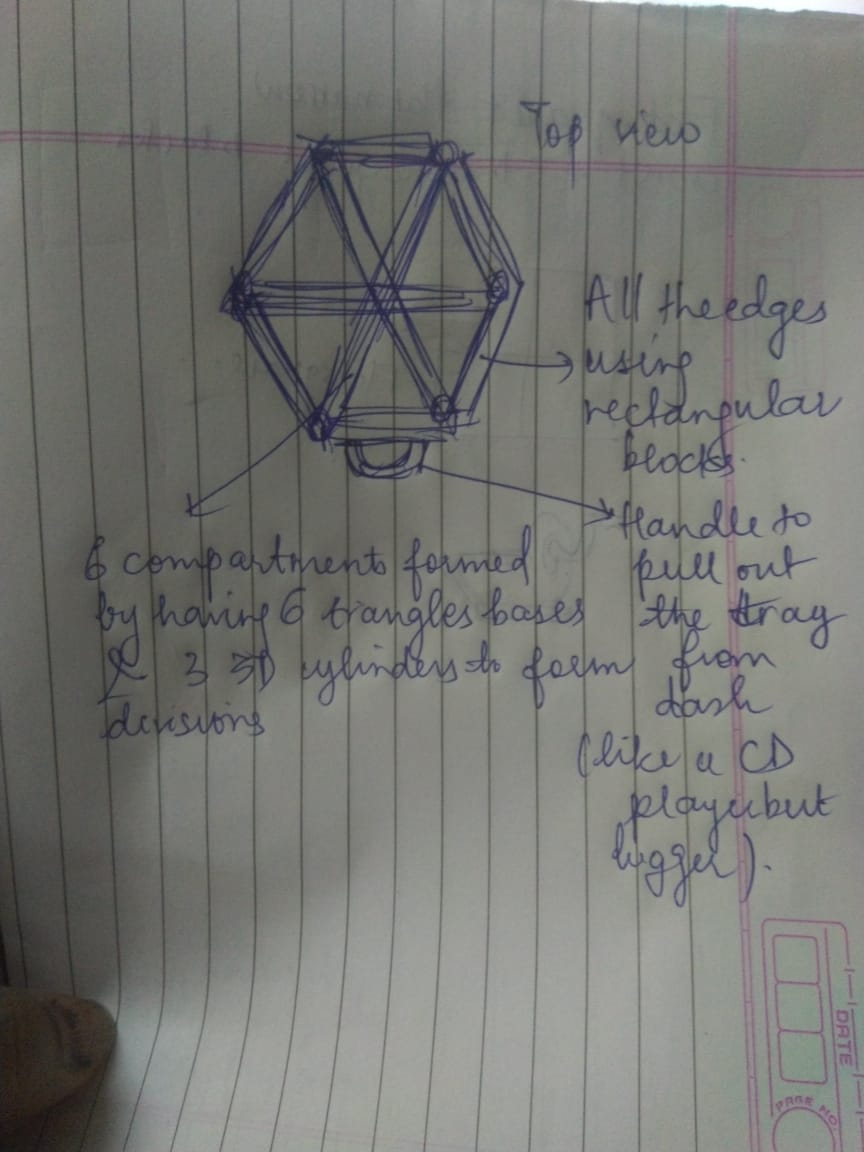 Top view
All the edges
using
rectangular
blocks.
Handle to
pull out
the tray
from
dash
(like a CD
player but
bigger).
6 compartment formed
by having 6 triangles bases
& 3 3D cylinders to form
divisions
DATE
PAGE NO.